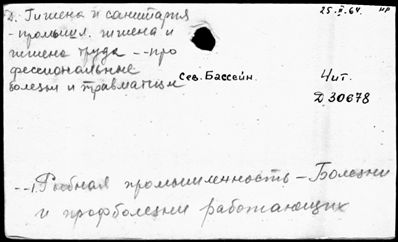 25.II.64. нр
D. Гигиена и санитария
- промышл. гигиена и
гигиена труда -- про
фессиональные
болезни и травматизм
Сев. Бассейн.
Чит.
D 30678
--1. Рыбная промышленность - Болезни
и профболезни работающих